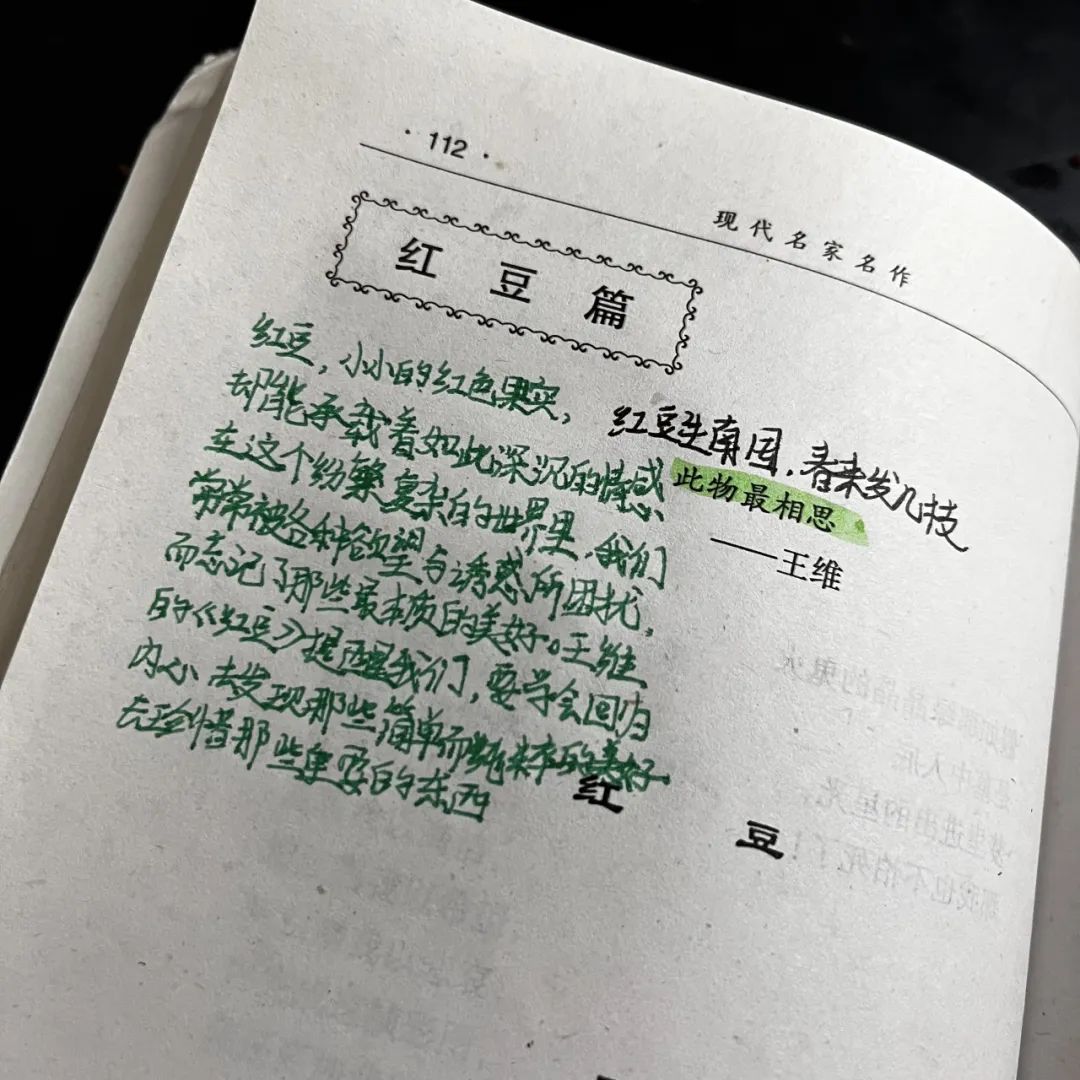 · 112 ·
现代名家名作
红豆篇
红豆，小小的红色果实，
却能承载着如此深沉的情感
在这个纷繁复杂的世界里，我们
常常被各种欲望与诱惑所困扰，
而忘记了那些最本质的美好。王维
的《红豆》提醒我们，要学会回归
内心去发现那些简单而纯粹的美好
去珍惜那些重要的东西
红豆生南国，春来发几枝
此物最相思
——王维
红豆